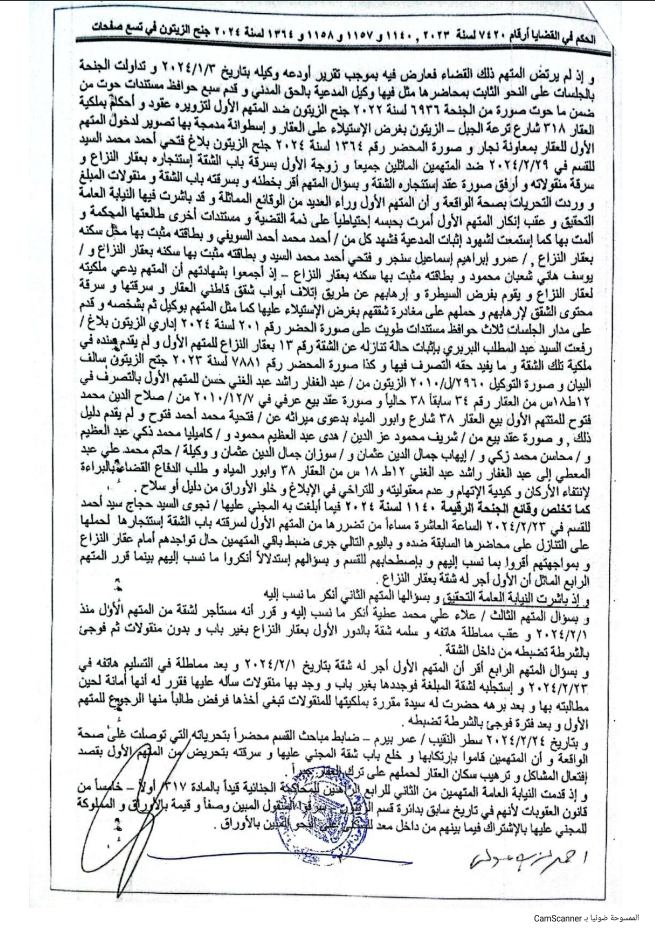 الحكم في القضايا أرقام ٧٤٢٠ لسنة ٢٠٢٣ , ١١٤٠ و ١١٥٧ و ١١٥٨ و ١٣٦٤ لسنة ٢٠٢٤ جنح الزيتون في تسع صفحات
و إذ لم يرتض المتهم ذلك القضاء فعارض فيه بموجب تقرير أودعه وكيله بتاريخ ٢٠٢٤/١/٣ و تداولت الجنحة
بالجلسات على النحو الثابت بمحاضرها مثل فيها وكيل المدعية بالحق المدني و قدم سبع حوافظ مستندات حوت من
ضمن ما حوت صورة من الجنحة ٦٩٣٦ لسنة ٢٠٢٢ جنح الزيتون ضد المتهم الأول لتزويره عقود و أحكام بملكية
العقار ٣١٨ شارع ترعة الجبل – الزيتون بغرض الإستيلاء على العقار و إسطوانة مدمجة بها تصوير لدخول المتهم
الأول للعقار بمعاونة نجار و صورة المحضر رقم ١٣٦٤ لسنة ٢٠٢٤ جنح الزيتون بلاغ فتحي أحمد محمد السيد
للقسم في ٢٠٢٤/٢/٢٩ ضد المتهمين الماثلين جميعاً و زوجة الأول بسرقة باب الشقة إستنجاره بعقار النزاع و
سرقة منقولاته و أرفق صورة عقد إستنجاره الشقة و بسؤال المتهم أقر بخطئه و بسرقته باب الشقة و منقولات المبلغ
و وردت التحريات بصحة الواقعة و أن المتهم الأول وراء العديد من الوقائع المماثلة و قد باشرت فيها النيابة العامة
التحقيق و عقب إنكار المتهم الأول أمرت بحبسه إحتياطياً على ذمة القضية و مستندات أخرى طالعتها المحكمة و
ألمت بها كما إستمعت لشهود إثبات المدعية فشهد كل من / أحمد محمد أحمد السويفي و بطاقته مثبت بها محل سكنه
بعقار النزاع , / عمرو إبراهيم إسماعيل سنجر و فتحي أحمد محمد السيد و بطاقته مثبت بها سكنه بعقار النزاع و /
يوسف هاني شعبان محمود و بطاقته مثبت بها سكنه بعقار النزاع – إذ أجمعوا بشهادتهم أن المتهم يدعي ملكيته
لعقار النزاع و يقوم بفرض السيطرة و إرهابهم عن طريق إتلاف أبواب شقق قاطني العقار و سرقتها و سرقة
محتوى الشقق لإرهابهم و حملهم على مغادرة شققهم بغرض الإستيلاء عليها كما مثل المتهم بوكيل ثم بشخصه و قدم
على مدار الجلسات ثلاث حوافظ مستندات طويت على صورة الحضر رقم ٢٠١ لسنة ٢٠٢٤ إداري الزيتون بلاغ /
رفعت السيد عبد المطلب البربري بإثبات حالة تنازله عن الشقة رقم ١٣ بعقار النزاع للمتهم الأول و لم يقدم سنده في
ملكية تلك الشقة و ما يفيد حقه التصرف فيها و كذا صورة المحضر رقم ٧٨٨١ لسنة ٢٠٢٣ جنح الزيتون سالف
البيان و صورة التوكيل ٢٩٦٠/ل/٢٠١٠ الزيتون من / عبد الغفار راشد عبد الغني حسن للمتهم الأول بالتصرف في
١٢ط١٨س من العقار رقم ٣٤ سابقاً ٣٨ حالياً و صورة عقد بيع عرفي في ٢٠١٠/١٢/٧ من / صلاح الدين محمد
فتوح للمتهم الأول بيع العقار ٣٨ شارع وابور المياه بدعوى ميراثه عن / فتحية محمد أحمد فتوح و لم يقدم دليل
ذلك , و صورة عقد بيع من / شريف محمود عز الدين / هدى عبد العظيم محمود و / كاميليا محمد ذكي عبد العظيم
و / محاسن محمد زكي و / إيهاب جمال الدين عثمان و / سوزان جمال الدين عثمان و وكيلة / حاتم محمد علي عبد
المعطي إلى عبد الغفار راشد عبد الغني ١٢ط ١٨ س من العقار ٣٨ وابور المياه و طلب الدفاع القضاء بالبراءة
لإنتفاء الأركان و كيدية الإتهام و عدم معقوليته و للتراخي في الإبلاغ و خلو الأوراق من دليل أو سلاح .
كما تخلص وقائع الجنحة الرقيمة ١١٤٠ لسنة ٢٠٢٤ فيما أبلغت به المجني عليها / نجوى السيد حجاج سيد أحمد
للقسم في ٢٠٢٤/٢/٢٣ الساعة العاشرة مساءاً من تضررها من المتهم الأول لسرقته باب الشقة إستنجارها لحملها
على التنازل على محاضرها السابقة ضده و باليوم التالي جرى ضبط باقي المتهمين حال تواجدهم أمام عقار النزاع
و بمواجهتهم أقروا بما نسب إليهم و بإصطحابهم للقسم و بسؤالهم إستدلالاً أنكروا ما نسب إليهم بينما قرر المتهم
الرابع الماثل أن الأول أجر له شقة بعقار النزاع .
و إذ باشرت النيابة العامة التحقيق و بسؤالها المتهم الثاني أنكر ما نسب إليه
و بسؤال المتهم الثالث / علاء علي محمد عطية أنكر ما نسب إليه و قرر أنه مستأجر لشقة من المتهم الأول منذ
٢٠٢٤/٢/١ و عقب مماطلة هاتفه و سلمه شقة بالدور الأول بعقار النزاع بغير باب و بدون منقولات ثم فوجئ
بالشرطة تضبطه من داخل الشقة .
و بسؤال المتهم الرابع أقر أن المتهم الأول أجر له شقة بتاريخ ٢٠٢٤/٢/١ و بعد مماطلة في التسليم هاتفه في
٢٠٢٤/٢/٢٣ و إستجلبه لشقة المبلغة فوجدها بغير باب و وجد بها منقولات سأله عليها فقرر له أنها أمانة لحين
مطالبته بها و بعد برهه حضرت له سيدة مقررة بملكيتها للمنقولات تبغي أخذها فرفض طالباً منها الرجوع للمتهم
الأول و بعد فترة فوجئ بالشرطة تضبطه .
و بتاريخ ٢٠٢٤/٢/٢٤ سطر النقيب / عمر بيرم – ضابط مباحث القسم محضراً بتحرياته التي توصلت على صحة
الواقعة و أن المتهمين قاموا بإرتكابها و خلع باب شقة المجني عليها و سرقته بتحريض من المتهم الأول بقصد
إفتعال المشاكل و ترهيب سكان العقار لحملهم على ترك العقار جبراً .
و إذ قدمت النيابة العامة المتهمين من الثاني للرابع للمحاكمة الجنائية قيداً بالمادة ٣١٧/ أولاً – خامساً من
قانون العقوبات لأنهم في تاريخ سابق بدائرة قسم الزيتون سرقوا المنقول المبين وصفاً و قيمة بالأوراق و المملوكة
للمجني عليها بالإشتراك فيما بينهم من داخل معد للسكنى على النحو المبين بالأوراق .
الممسوحة ضوئيا بـ CamScanner